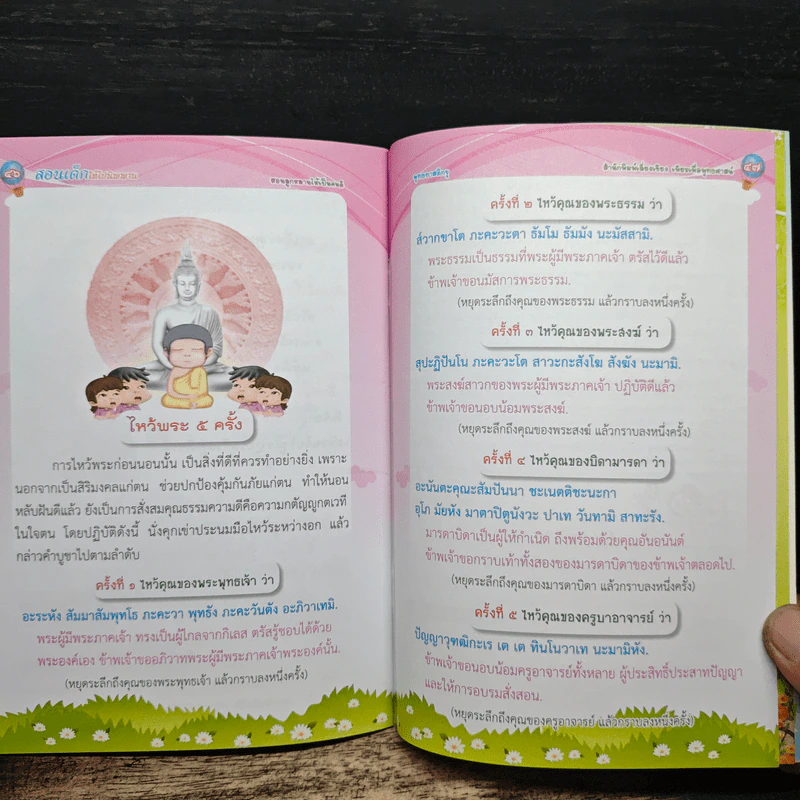 ๔๖
สอนเด็กให้ไปนิพพาน
สอนลูกหลานให้เป็นคนดี
ไหว้พระ ๕ ครั้ง
การไหว้พระก่อนนอนนั้น เป็นสิ่งที่ดีที่ควรทำอย่างยิ่ง เพราะ
นอกจากเป็นสิริมงคลแก่ตน ช่วยปกป้องคุ้มกันภัยแก่ตน ทำให้นอน
หลับฝันดีแล้ว ยังเป็นการสั่งสมคุณธรรมความดีคือความกตัญญูกตเวที
ในใจตน โดยปฏิบัติดังนี้ นั่งคุกเข่าประนมมือไหว้ระหว่างอก แล้ว
กล่าวคำบูชาไปตามลำดับ
ครั้งที่ ๑ ไหว้คุณของพระพุทธเจ้า ว่า
อะระหัง สัมมาสัมพุทโธ ภะคะวา พุทธัง ภะคะวันตัง อะภิวาเทมิ.
พระผู้มีพระภาคเจ้า ทรงเป็นผู้ไกลจากกิเลส ตรัสรู้ชอบได้ด้วย
พระองค์เอง ข้าพเจ้าขออภิวาทพระผู้มีพระภาคเจ้าพระองค์นั้น.
(หยุดระลึกถึงคุณของพระพุทธเจ้า แล้วกราบลงหนึ่งครั้ง)
พุทธยาสติกรุ
สำนักพิมพ์เลี่ยงเชียง เพียรเพื่อพุทธศาสน์
๔๗
ครั้งที่ ๒ ไหว้คุณของพระธรรม ว่า
ส๎วากขาโต ภะคะวะตา ธัมโม ธัมมัง นะมัสสามิ.
พระธรรมเป็นธรรมที่พระผู้มีพระภาคเจ้า ตรัสไว้ดีแล้ว
ข้าพเจ้าขอนมัสการพระธรรม.
(หยุดระลึกถึงคุณของพระธรรม แล้วกราบลงหนึ่งครั้ง)
ครั้งที่ ๓ ไหว้คุณของพระสงฆ์ ว่า
สุปะฏิปันโน ภะคะวะโต สาวะกะสังโฆ สังฆัง นะมามิ.
พระสงฆ์สาวกของพระผู้มีพระภาคเจ้า ปฏิบัติดีแล้ว
ข้าพเจ้าขอนอบน้อมพระสงฆ์.
(หยุดระลึกถึงคุณของพระสงฆ์ แล้วกราบลงหนึ่งครั้ง)
ครั้งที่ ๔ ไหว้คุณของบิดามารดา ว่า
อะนันตะคุณะสัมปันนา ชะเนตติชะนะกา
อุโภ มัยหัง มาตาปิตูนังวะ ปาเท วันทามิ สาทะรัง.
มารดาบิดาเป็นผู้ให้กำเนิด ถึงพร้อมด้วยคุณอันอนันต์
ข้าพเจ้าขอกราบเท้าทั้งสองของมารดาบิดาของข้าพเจ้าตลอดไป.
(หยุดระลึกถึงคุณของมารดาบิดา แล้วกราบลงหนึ่งครั้ง)
ครั้งที่ ๕ ไหว้คุณของครูบาอาจารย์ ว่า
ปัญญาวุฑฒิกะเร เต เต ทินโนวาเท นะมามิหัง.
ข้าพเจ้าขอนอบน้อมครูอาจารย์ทั้งหลาย ผู้ประสิทธิ์ประสาทปัญญา
และให้การอบรมสั่งสอน.
(หยุดระลึกถึงคุณของครูอาจารย์ แล้วกราบลงหนึ่งครั้ง)